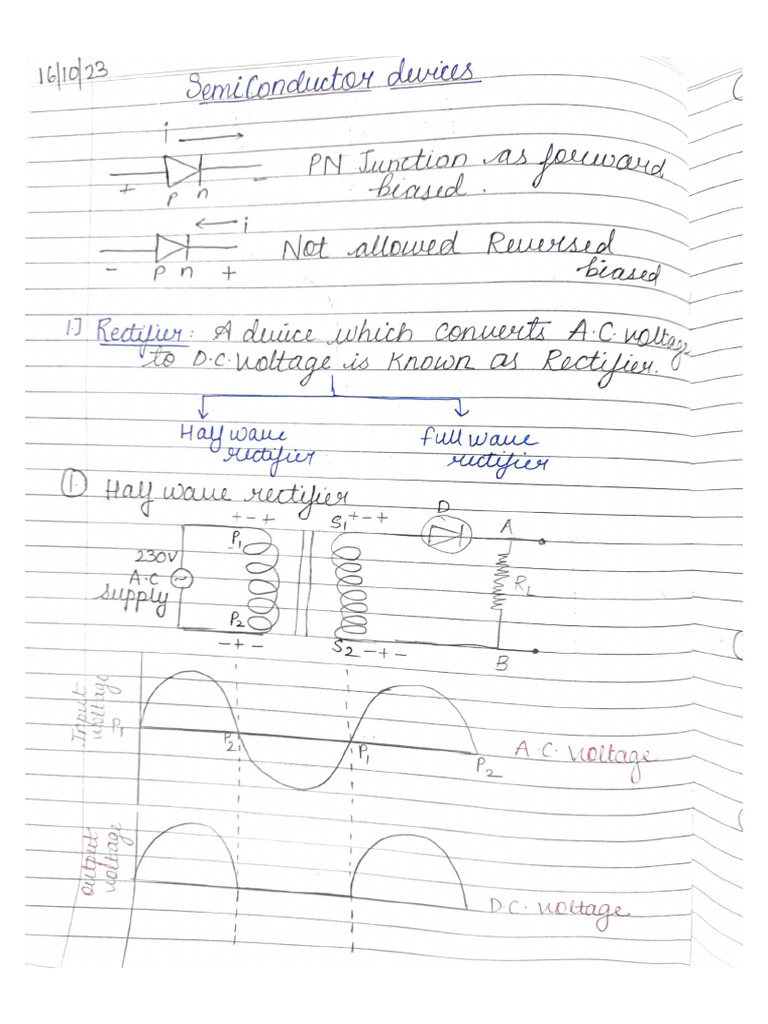 16/10/23
Semiconductor devices
i
+ P n -
PN Junction as forward
biased.
i
- P n +
Not allowed Reversed
biased
1.] Rectifier: A device which converts A.C. voltage
to D.C. voltage is known as Rectifier.
Half wave
rectifier
full wave
rectifier
1. Half wave rectifier
+ - +
S1 + - +
D
A
P1
230V
A.C
supply
RL
P2
- + -
S2 - + -
B
Input
voltage
P1
P2
P1
P2
A.C. voltage
output
voltage
D.C. voltage